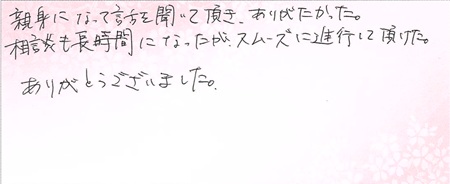 親身になって話を聞いて頂き、ありがたかった。
相談も長時間になったが、スムーズに進行して頂けた。
ありがとうございました。